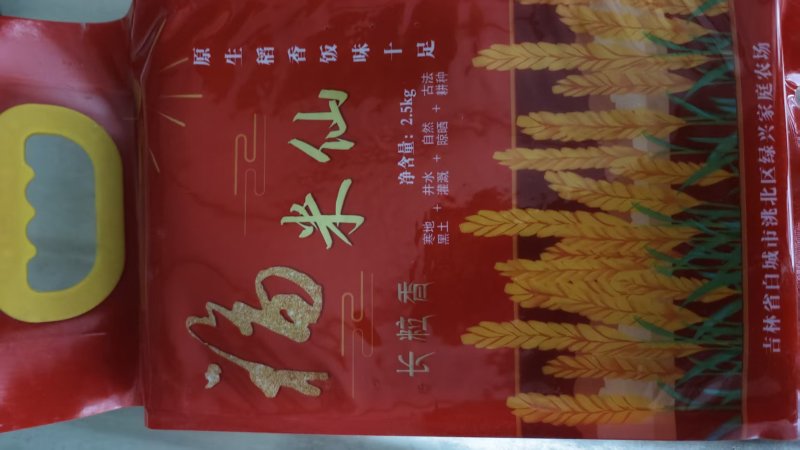 福米仙
原生稻香饭味十足
长粒香
净含量：2.5kg
寒地 井水 自然 古法
黑土 + 灌溉 + 晾晒 + 耕种
吉林省白城市洮北区绿兴家庭农场